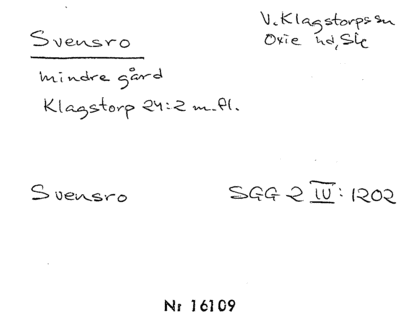 V. Klagstorps sn
Svensro
Oxie hd, Sk
mindre gård
Klagstorp 24:2 m.fl.
Svensro SGG 2 IV: 1202
Nr 16109